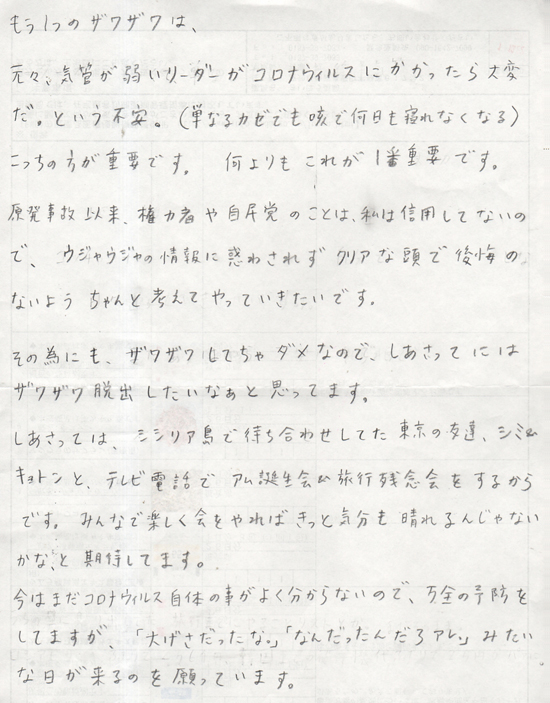 もう1つのザワザワは、
元々、気管が弱いリーダーがコロナウィルスにかかったら大変
だ。という不安。(単なるカゼでも咳で何日も寝れなくなる)
こっちの方が重要です。 何よりもこれが1番重要です。
原発事故以来、権力者や自民党のことは、私は信用してないの
で、ウジャウジャの情報に惑わされずクリアな頭で後悔の
ないようちゃんと考えてやっていきたいです。
その為にも、ザワザワしてちゃダメなので、しあさってには
ザワザワ脱出したいなぁと思ってます。
しあさっては、シシリア島で待ち合わせしてた東京の友達、シミ
キョトンと、テレビ電話でアム誕生会&旅行残念会をするから
です。みんなで楽しく会をやればきっと気分も晴れるんじゃない
かな、と期待してます。
今はまだコロナウィルス自体の事がよく分からないので、万全の予防を
してますが、「大げさだったな。」「なんだったんだろアレ。」みたい
な日が来るのを願っています。